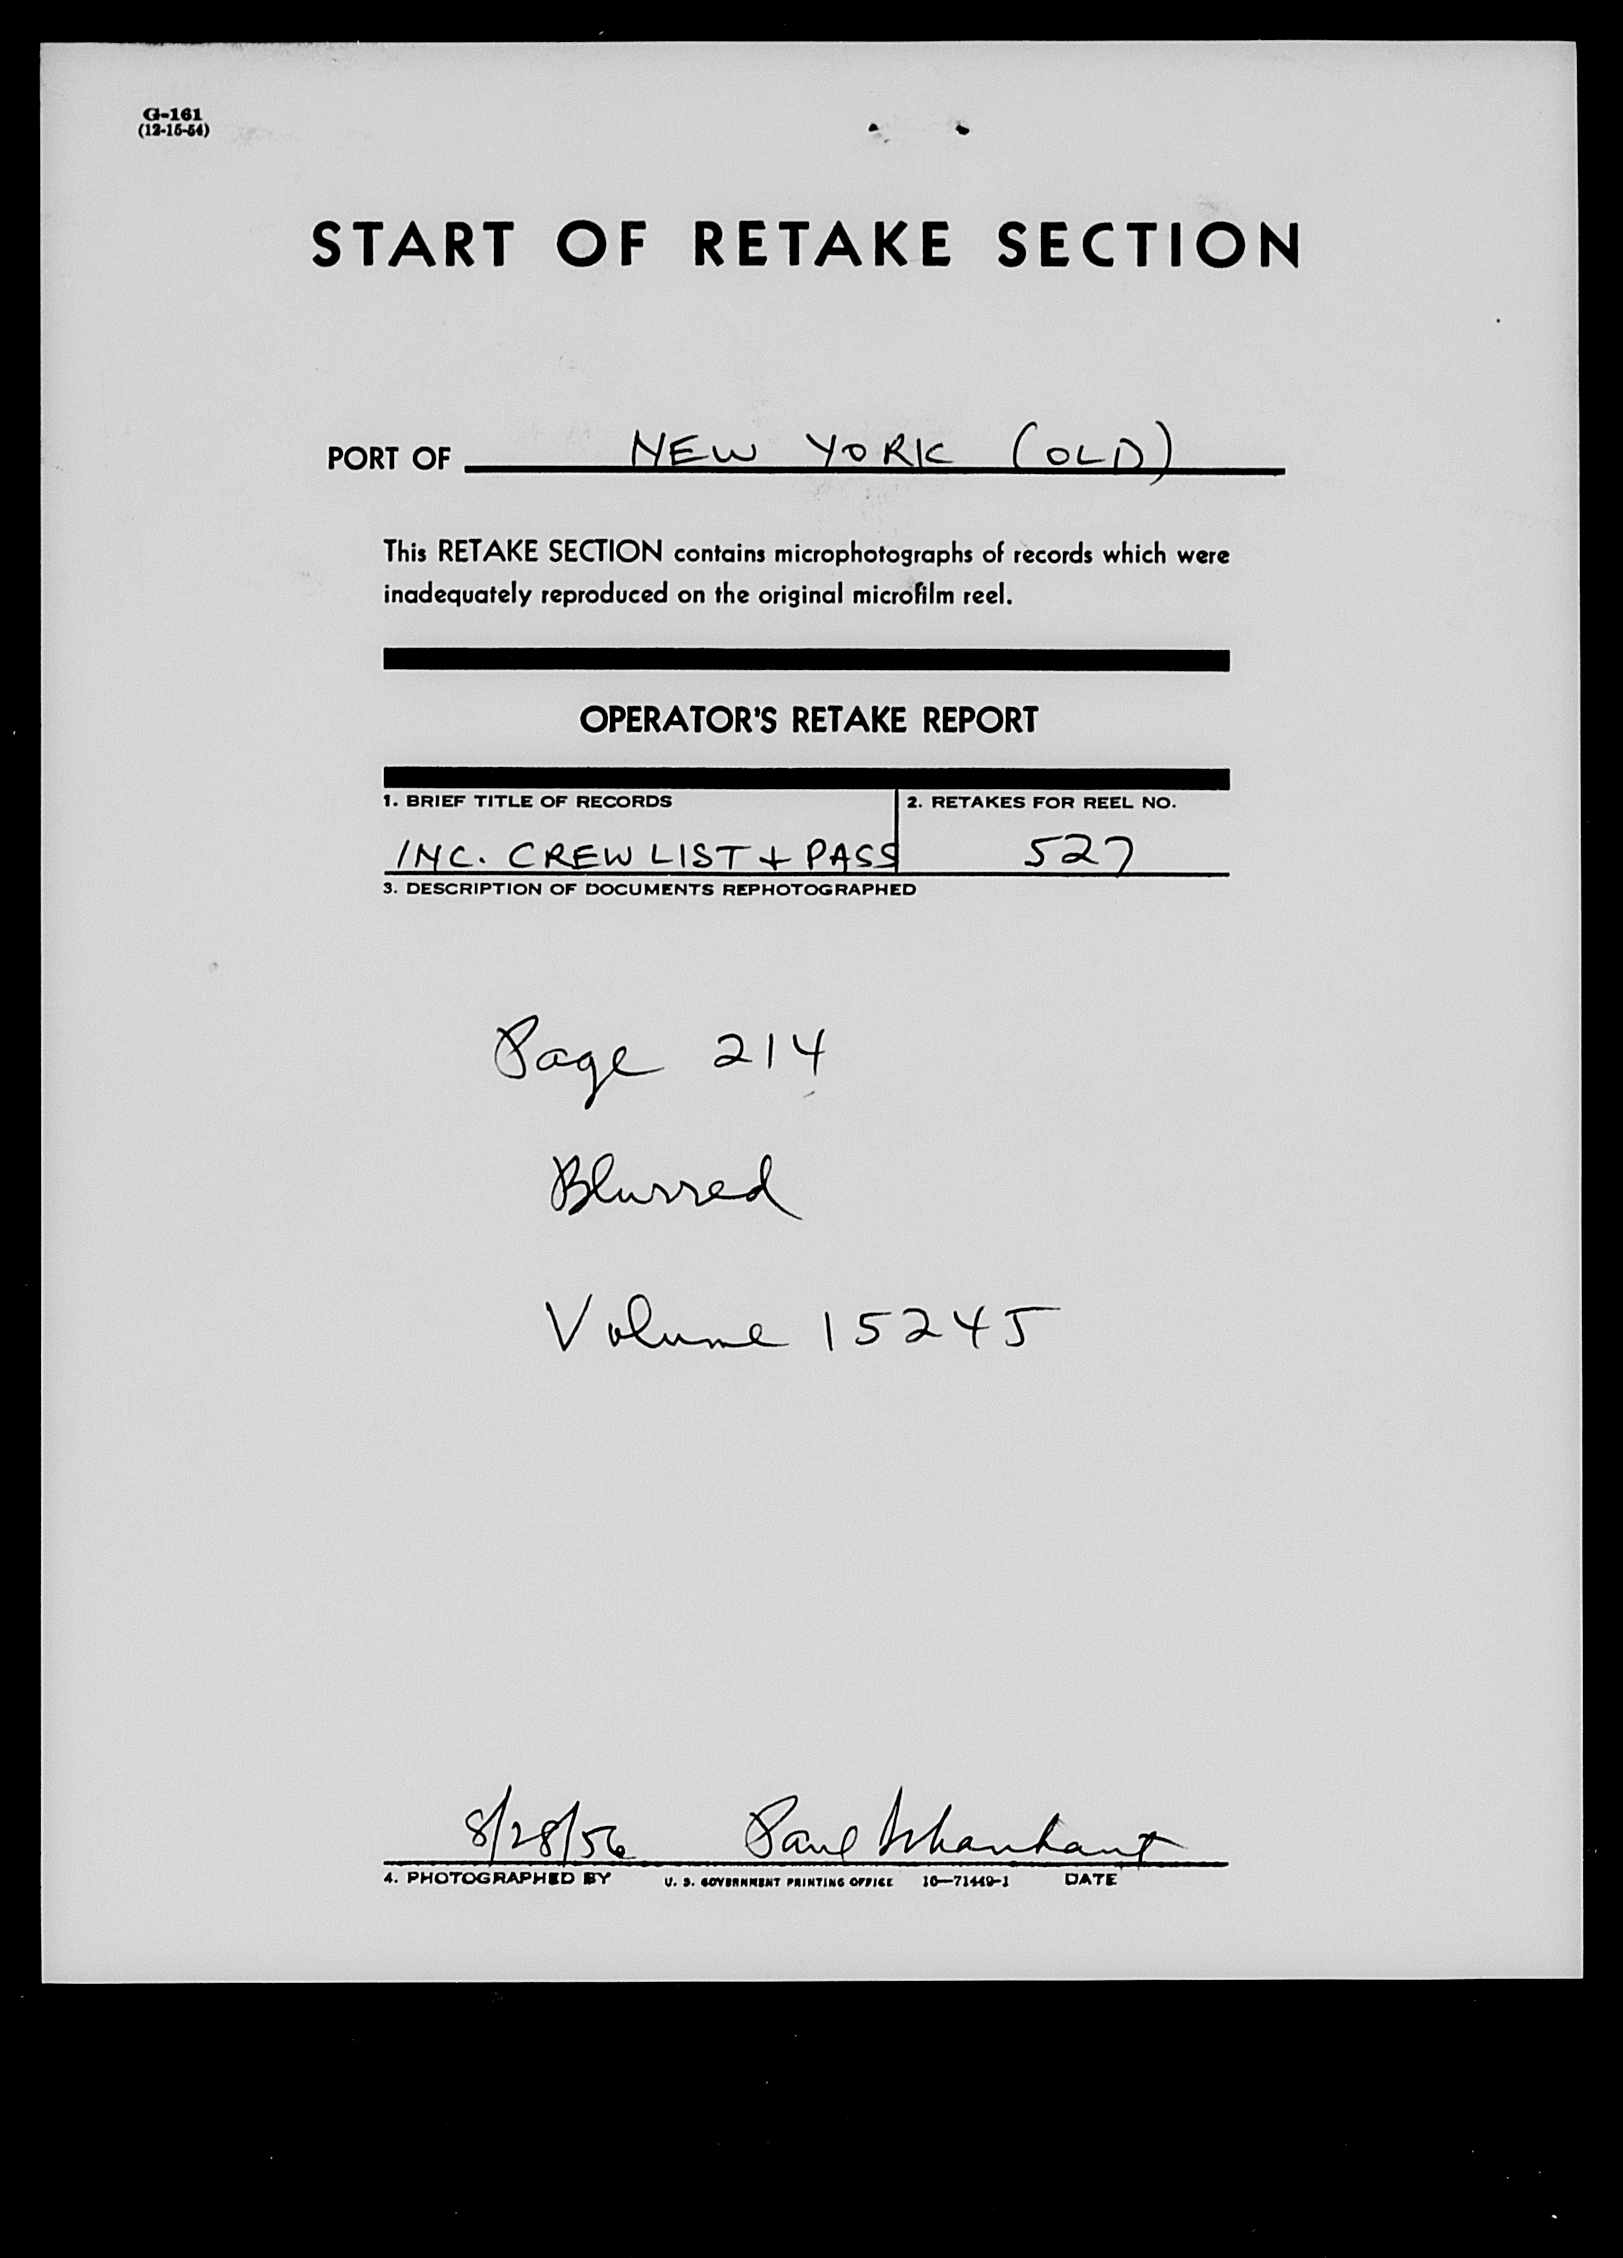 G-161
(12-15-54)
START OF RETAKE SECTION
PORT OF NEW YORK (OLD)
This RETAKE SECTION contains microphotographs of records which were
inadequately reproduced on the original microfilm reel.
OPERATOR'S RETAKE REPORT
1. BRIEF TITLE OF RECORDS 2. RETAKES FOR REEL NO.
INC. CREW LIST + PASS 527
3. DESCRIPTION OF DOCUMENTS REPHOTOGRAPHED
Page 214
Blurred
Volume 15245
8/28/56 Paul
4. PHOTOGRAPHED BY U. S. GOVERNMENT PRINTING OFFICE 16—71449-1 DATE